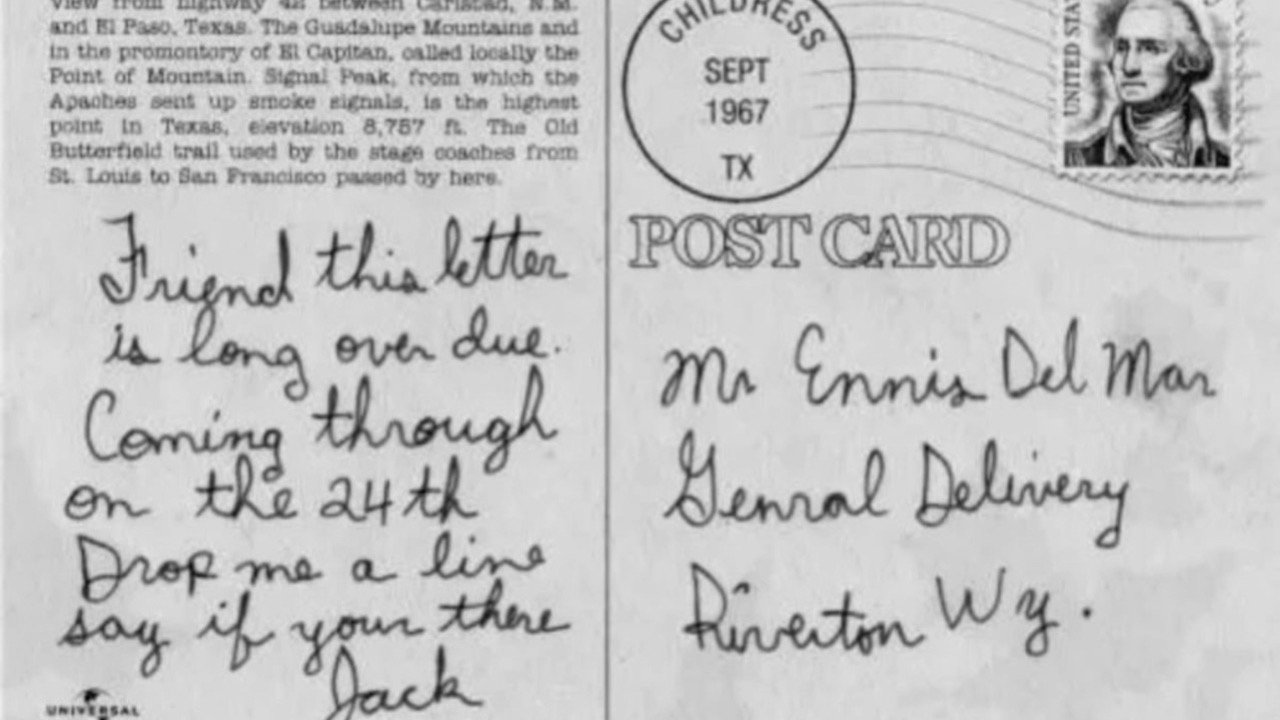 View from highway between Carlsbad, N.M.
and El Paso, Texas. The Guadalupe Mountains and
in the promontory of El Capitan, called locally the
Point of Mountain. Signal Peak, from which the
Apaches sent up smoke signals, is the highest
point in Texas, elevation 8,757 ft. The Old
Butterfield trail used by the stage coaches from
St. Louis to San Francisco passed by here.
Friend this letter
is long over due.
Coming through
on the 24th
Drop me a line
say if your there
Jack
UNIVERSAL
CHILDRESS
SEPT
1967
TX
UNITED STA
POST CARD
Mr Ennis Del Mar
Genral Delivery
Riverton Wy.